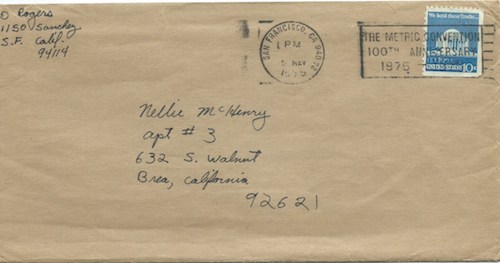 D Rogers
1150 Sanchez
S.F. Calif.
94114
SAN FRANCISCO, CA
1 PM
5 MAY
1975
THE METRIC CONVENTION
100TH ANNIVERSARY
1975
10c
Nellie McHenry
apt # 3
632 S. Walnut
Brea, California
92621